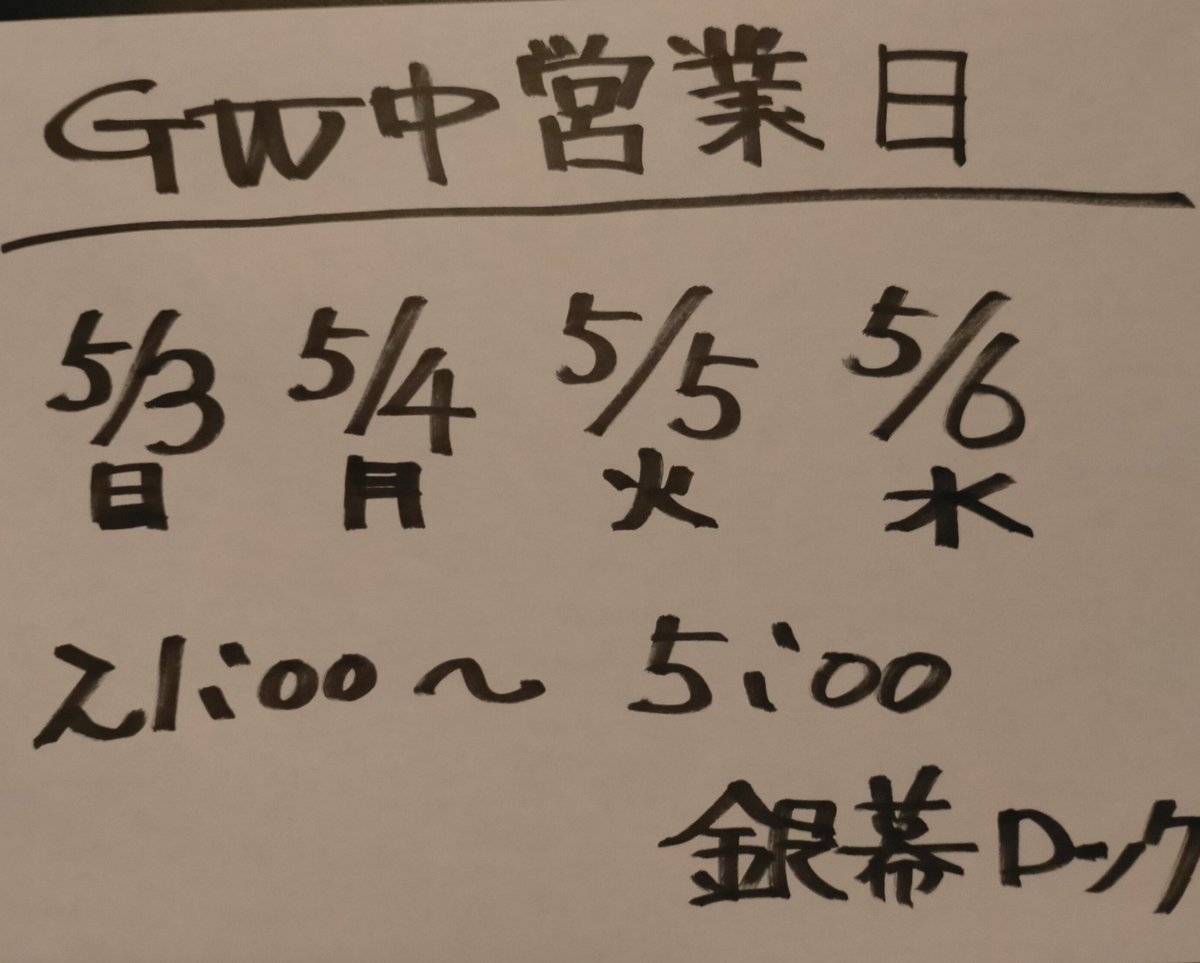 GW中営業日
5/3 5/4 5/5 5/6
日 月 火 水
21:00～5:00
銀幕ロック